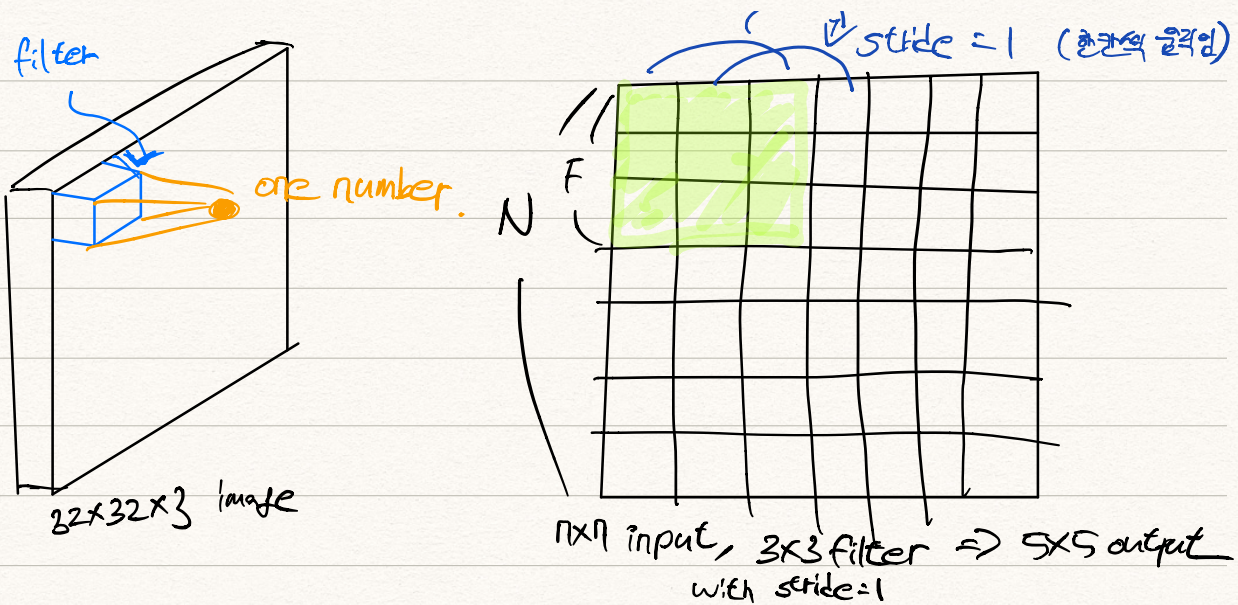 filter
one number.
32×32×3 image
stride = 1 (한칸씩 움직임)
F
N
7×7 input, 3×3 filter => 5×5 output
with stride=1